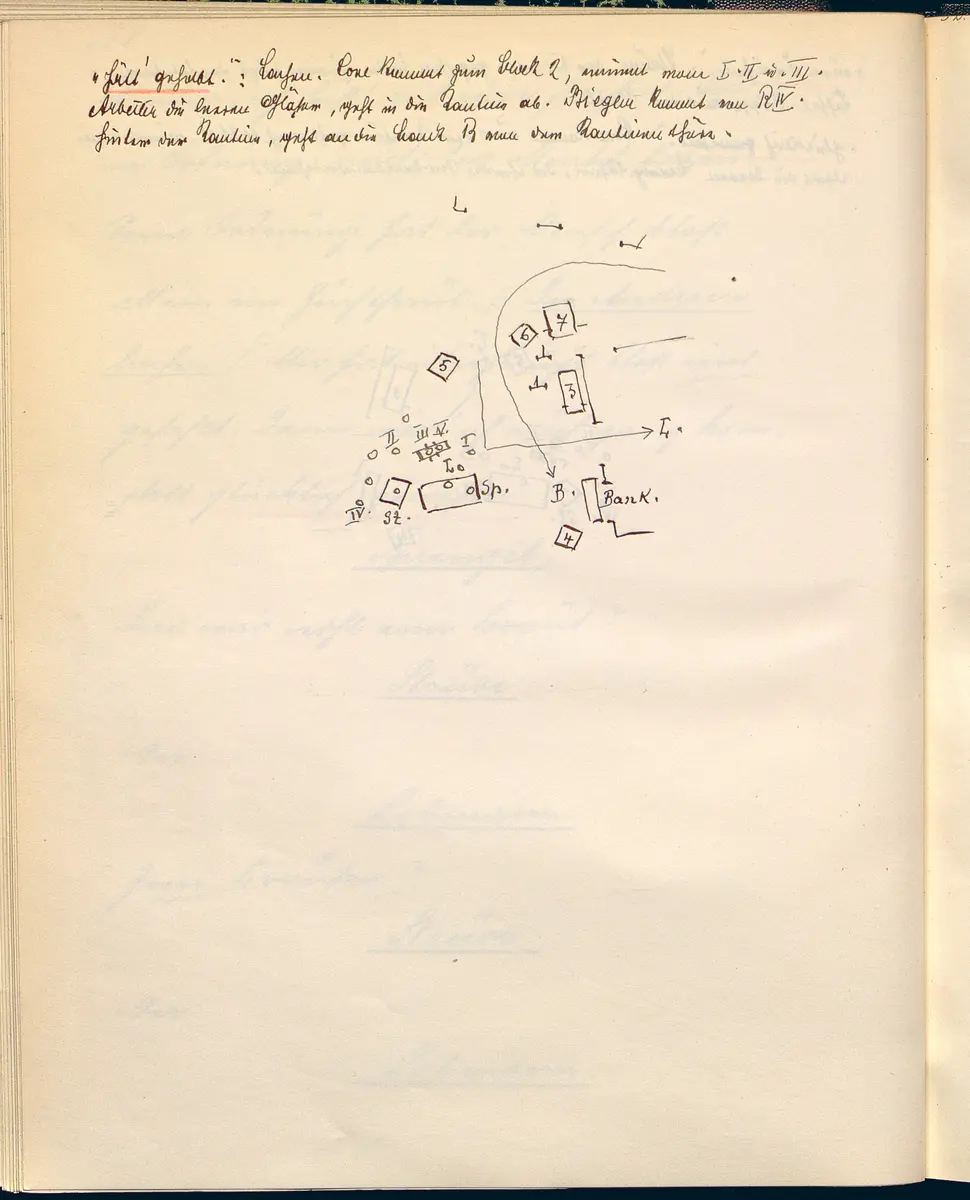 "Hält' gehabt.": Lachen. Lore kommt zum Block 2, nimmt vom I. II u. III.
Arbeiter die leeren Gläser, geht in die Kantine ab. Biegen kommt von R IV.
hinter der Kantine, geht an die Bank R von der Kantinenthüre.
L
7
6
5
3
L.
II III IV. I
L
Sp.
B. Bank.
IV. Sz.
4